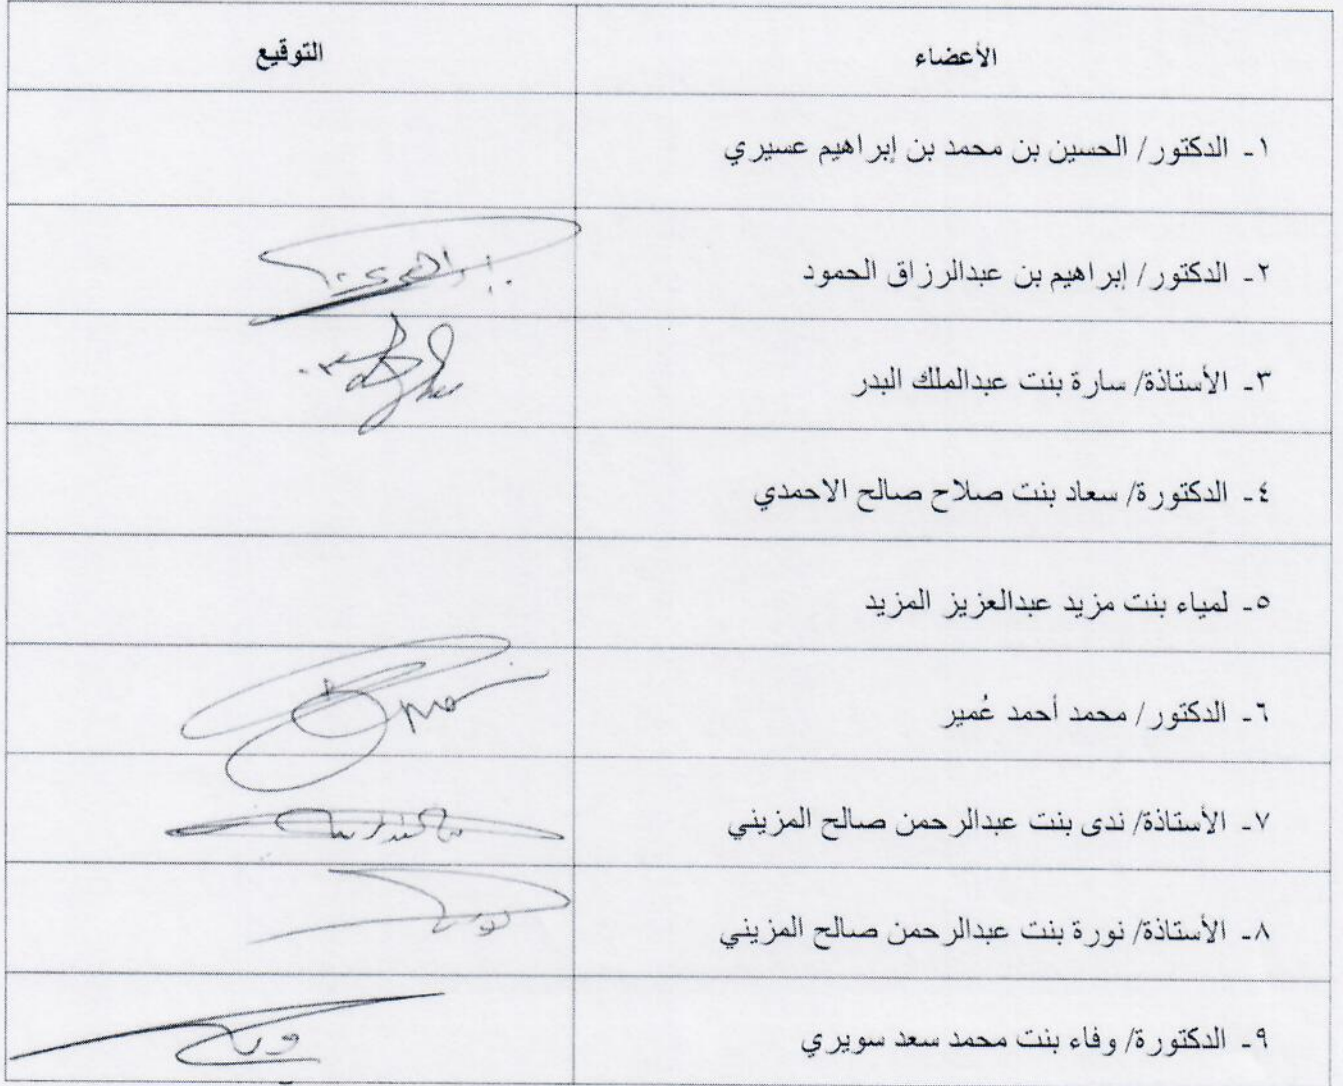 الأعضاء التوقيع
١- الدكتور/ الحسين بن محمد بن إبراهيم عسيري
٢- الدكتور/ إبراهيم بن عبدالرزاق الحمود
٣- الأستاذة/ سارة بنت عبدالملك البدر
٤- الدكتورة/ سعاد بنت صلاح صالح الاحمدي
٥- لمياء بنت مزيد عبدالعزيز المزيد
٦- الدكتور/ محمد أحمد عُمير
٧- الأستاذة/ ندى بنت عبدالرحمن صالح المزيني
٨- الأستاذة/ نورة بنت عبدالرحمن صالح المزيني
٩- الدكتورة/ وفاء بنت محمد سعد سويري